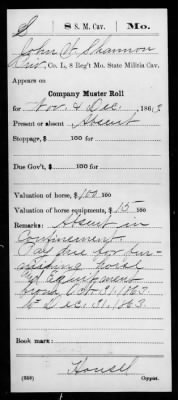 S 8 S. M. Cav. Mo.
John H Shannon
Pvt, Co. L, 8 Reg't Mo. State Militia Cav.
Appears on
Company Muster Roll
for Nov. & Dec., 1863
Present or absent Absent
Stoppage, $ 100 for
Due Gov't, $ 100
Valuation of horse, $100 100
Valuation of horse equipments, $15 100
Remarks: Absent in
Confinement.
Pay due for fur-
nishing horse
and equipment
from Oct. 31, 1863
to Dec. 31, 1863.
Book mark:
(358) Copyist.